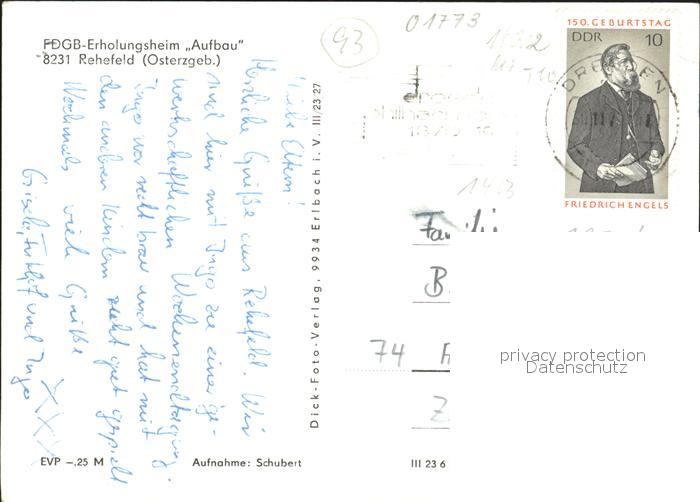 FDGB-Erholungsheim „Aufbau“
8231 Rehefeld (Osterzgeb.)
Liebe Eltern!
Herzliche Grüße aus Rehefeld. Wir
sind hier mit Ingo zu einer ge-
werkschaftlichen Wochenendtagung.
Ingo war recht brav und hat mit
den anderen Kindern recht gut gespielt
Nochmals viele Grüße
und Ingo
XXX
EVP –,25 M
Aufnahme: Schubert
Dick-Foto-Verlag, 9934 Erlbach i. V. III/23/27
III 23 6
93
01773
1403
150. GEBURTSTAG
DDR 10
FRIEDRICH ENGELS
DRESDEN
B
74
Z
privacy protection
Datenschutz